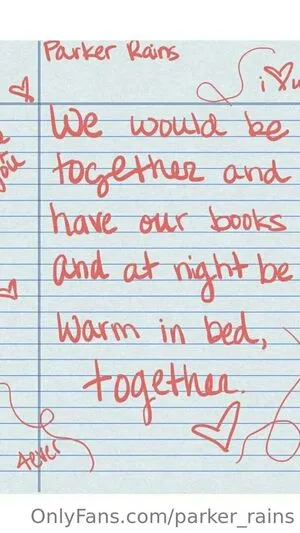 Parker Rains
i ♡ u
We would be
together and
you
have our books
and at night be
warm in bed,
together.
4ever
OnlyFans.com/parker_rains